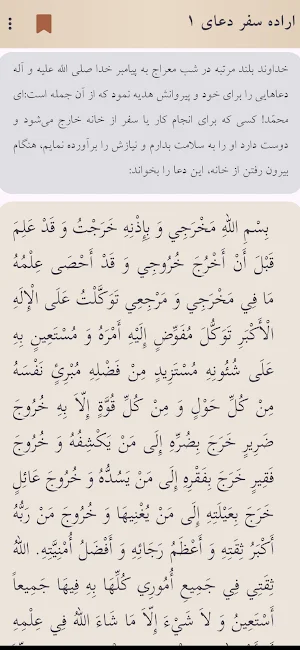 اراده سفر دعای ۱
خداوند بلند مرتبه در شب معراج به پیامبر خدا صلی الله علیه و آله
دعاهایی را برای خود و پیروانش هدیه نمود که از آن جمله است:ای
محمّد! کسی که برای انجام کار یا سفر از خانه خارج می‌شود و
دوست دارد او را به سلامت بدارم و نیازش را برآورده نمایم، هنگام
بیرون رفتن از خانه، این دعا را بخواند:
بِسْمِ اللهِ مَخْرَجِي وَ بِإِذْنِهِ خَرَجْتُ وَ قَدْ عَلِمَ
قَبْلَ أَنْ أَخْرُجَ خُرُوجِي وَ قَدْ أَحْصَى عِلْمُهُ
مَا فِي مَخْرَجِي وَ مَرْجِعِي تَوَكَّلْتُ عَلَى الْإِلَهِ
الْأَكْبَرِ تَوَكُّلَ مُفَوِّضٍ إِلَيْهِ أَمْرَهُ وَ مُسْتَعِينٍ بِهِ
عَلَى شُئُونِهِ مُسْتَزِيدٍ مِنْ فَضْلِهِ مُبْرِئٍ نَفْسَهُ
مِنْ كُلِّ حَوْلٍ وَ مِنْ كُلِّ قُوَّةٍ إِلَّا بِهِ خُرُوجَ
ضَرِيرٍ خَرَجَ بِضُرِّهِ إِلَى مَنْ يَكْشِفُهُ وَ خُرُوجَ
فَقِيرٍ خَرَجَ بِفَقْرِهِ إِلَى مَنْ يَسُدُّهُ وَ خُرُوجَ عَائِلٍ
خَرَجَ بِعَيْلَتِهِ إِلَى مَنْ يُغْنِيهَا وَ خُرُوجَ مَنْ رَبُّهُ
أَكْبَرُ ثِقَتِهِ وَ أَعْظَمُ رَجَائِهِ وَ أَفْضَلُ أُمْنِيَّتِهِ. اللهُ
ثِقَتِي فِي جَمِيعِ أُمُورِي كُلِّهَا بِهِ فِيهَا جَمِيعاً
أَسْتَعِينُ وَ لاَ شَيْءَ إِلَّا مَا شَاءَ اللهُ فِي عِلْمِهِ